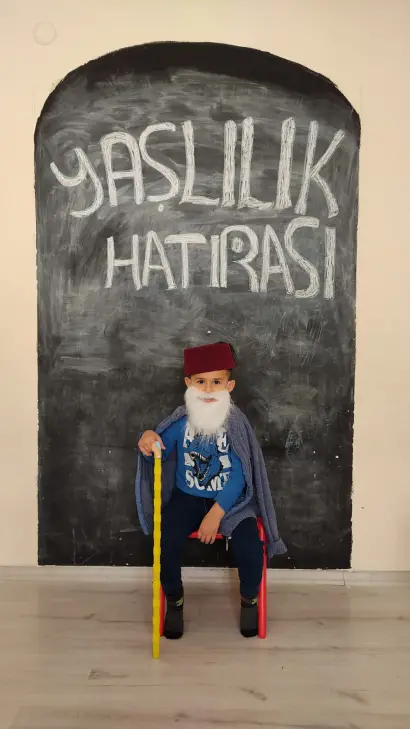 YAŞLILIK
HATIRASI